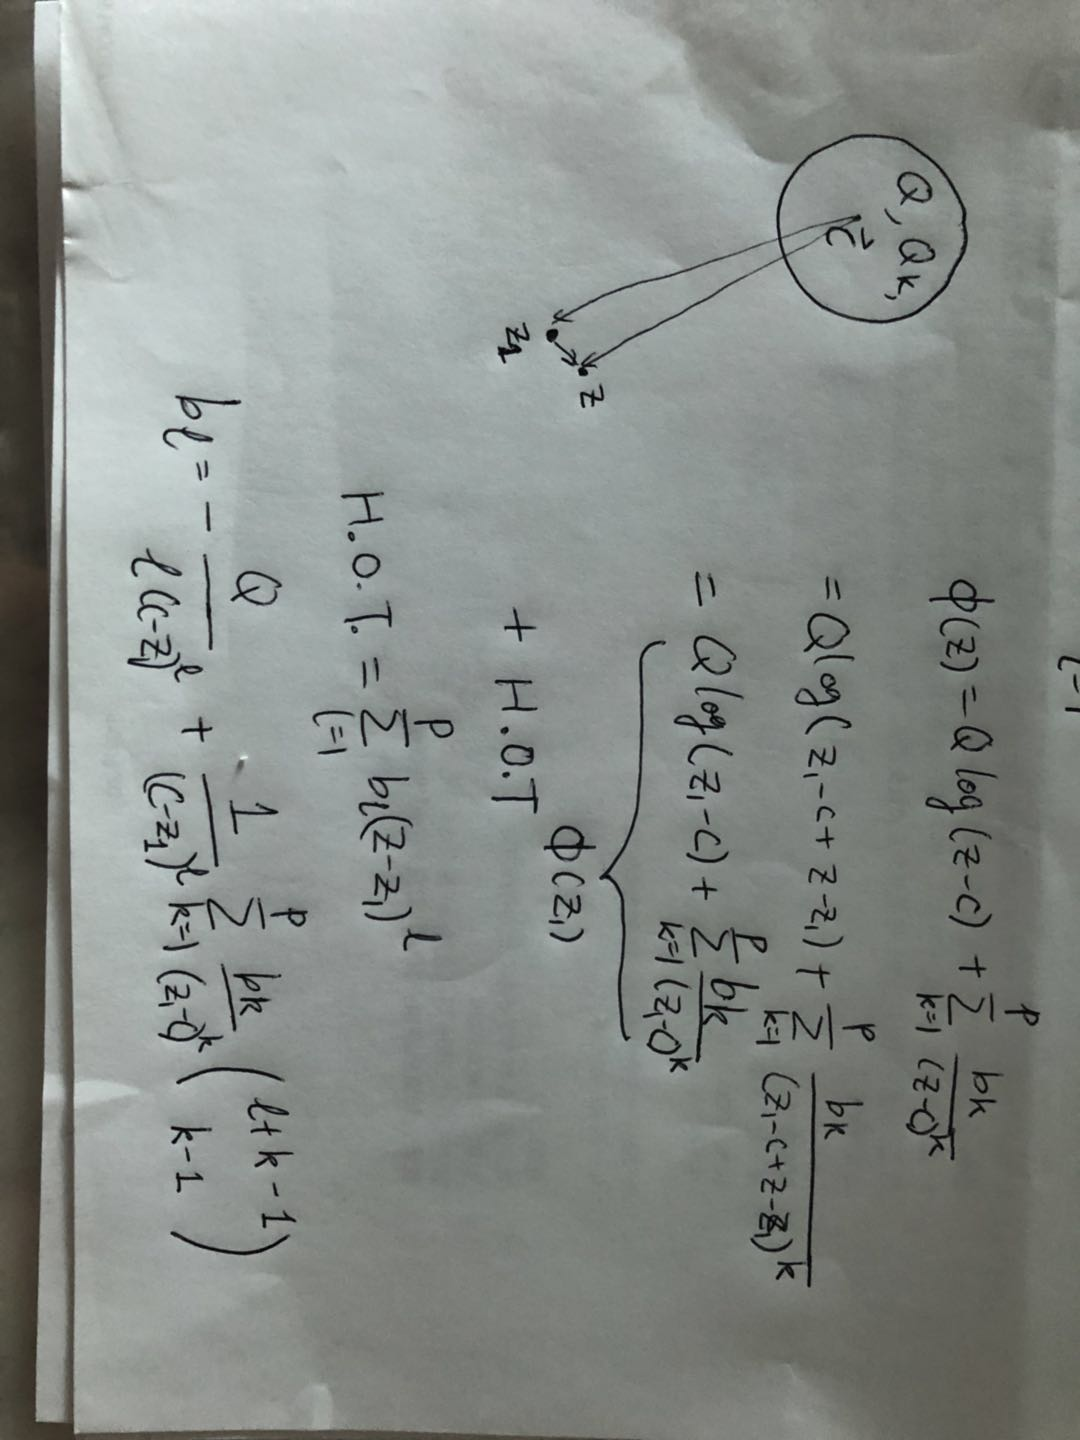 Q, Qk,
c⃗
z₁
z
ϕ(z) = Q log(z-c) + Σ_{k=1}^{p} bk/(z-c)^k
= Q log(z₁-c+z-z₁) + Σ_{k=1}^{p} bk/(z₁-c+z-z₁)^k
= Q log(z₁-c) + Σ_{k=1}^{p} bk/(z₁-c)^k
ϕ(z₁)
+ H.O.T
H.O.T. = Σ_{l=1}^{p} bl(z-z₁)^l
bl = - Q/(l(c-z₁)^l) + 1/(c-z₁)^l Σ_{k=1}^{p} bk/(z₁-c)^k (l+k-1 k-1)